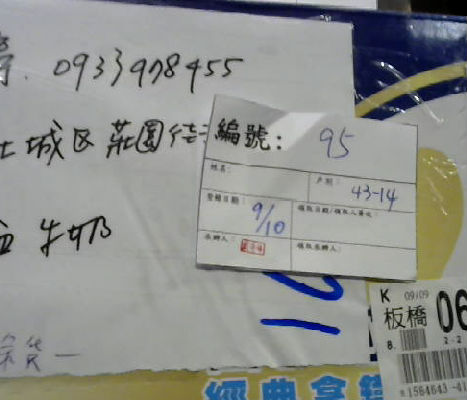 0933978455
土城区莊園街
編號: 95
姓名:
戶別: 43-14
登錄日期: 9/10
領取日期/領取人簽收:
承辦人:
領取承辦人:
牛奶
K 09/09
板橋 06
8.
2-2
貨一
經典拿鐵